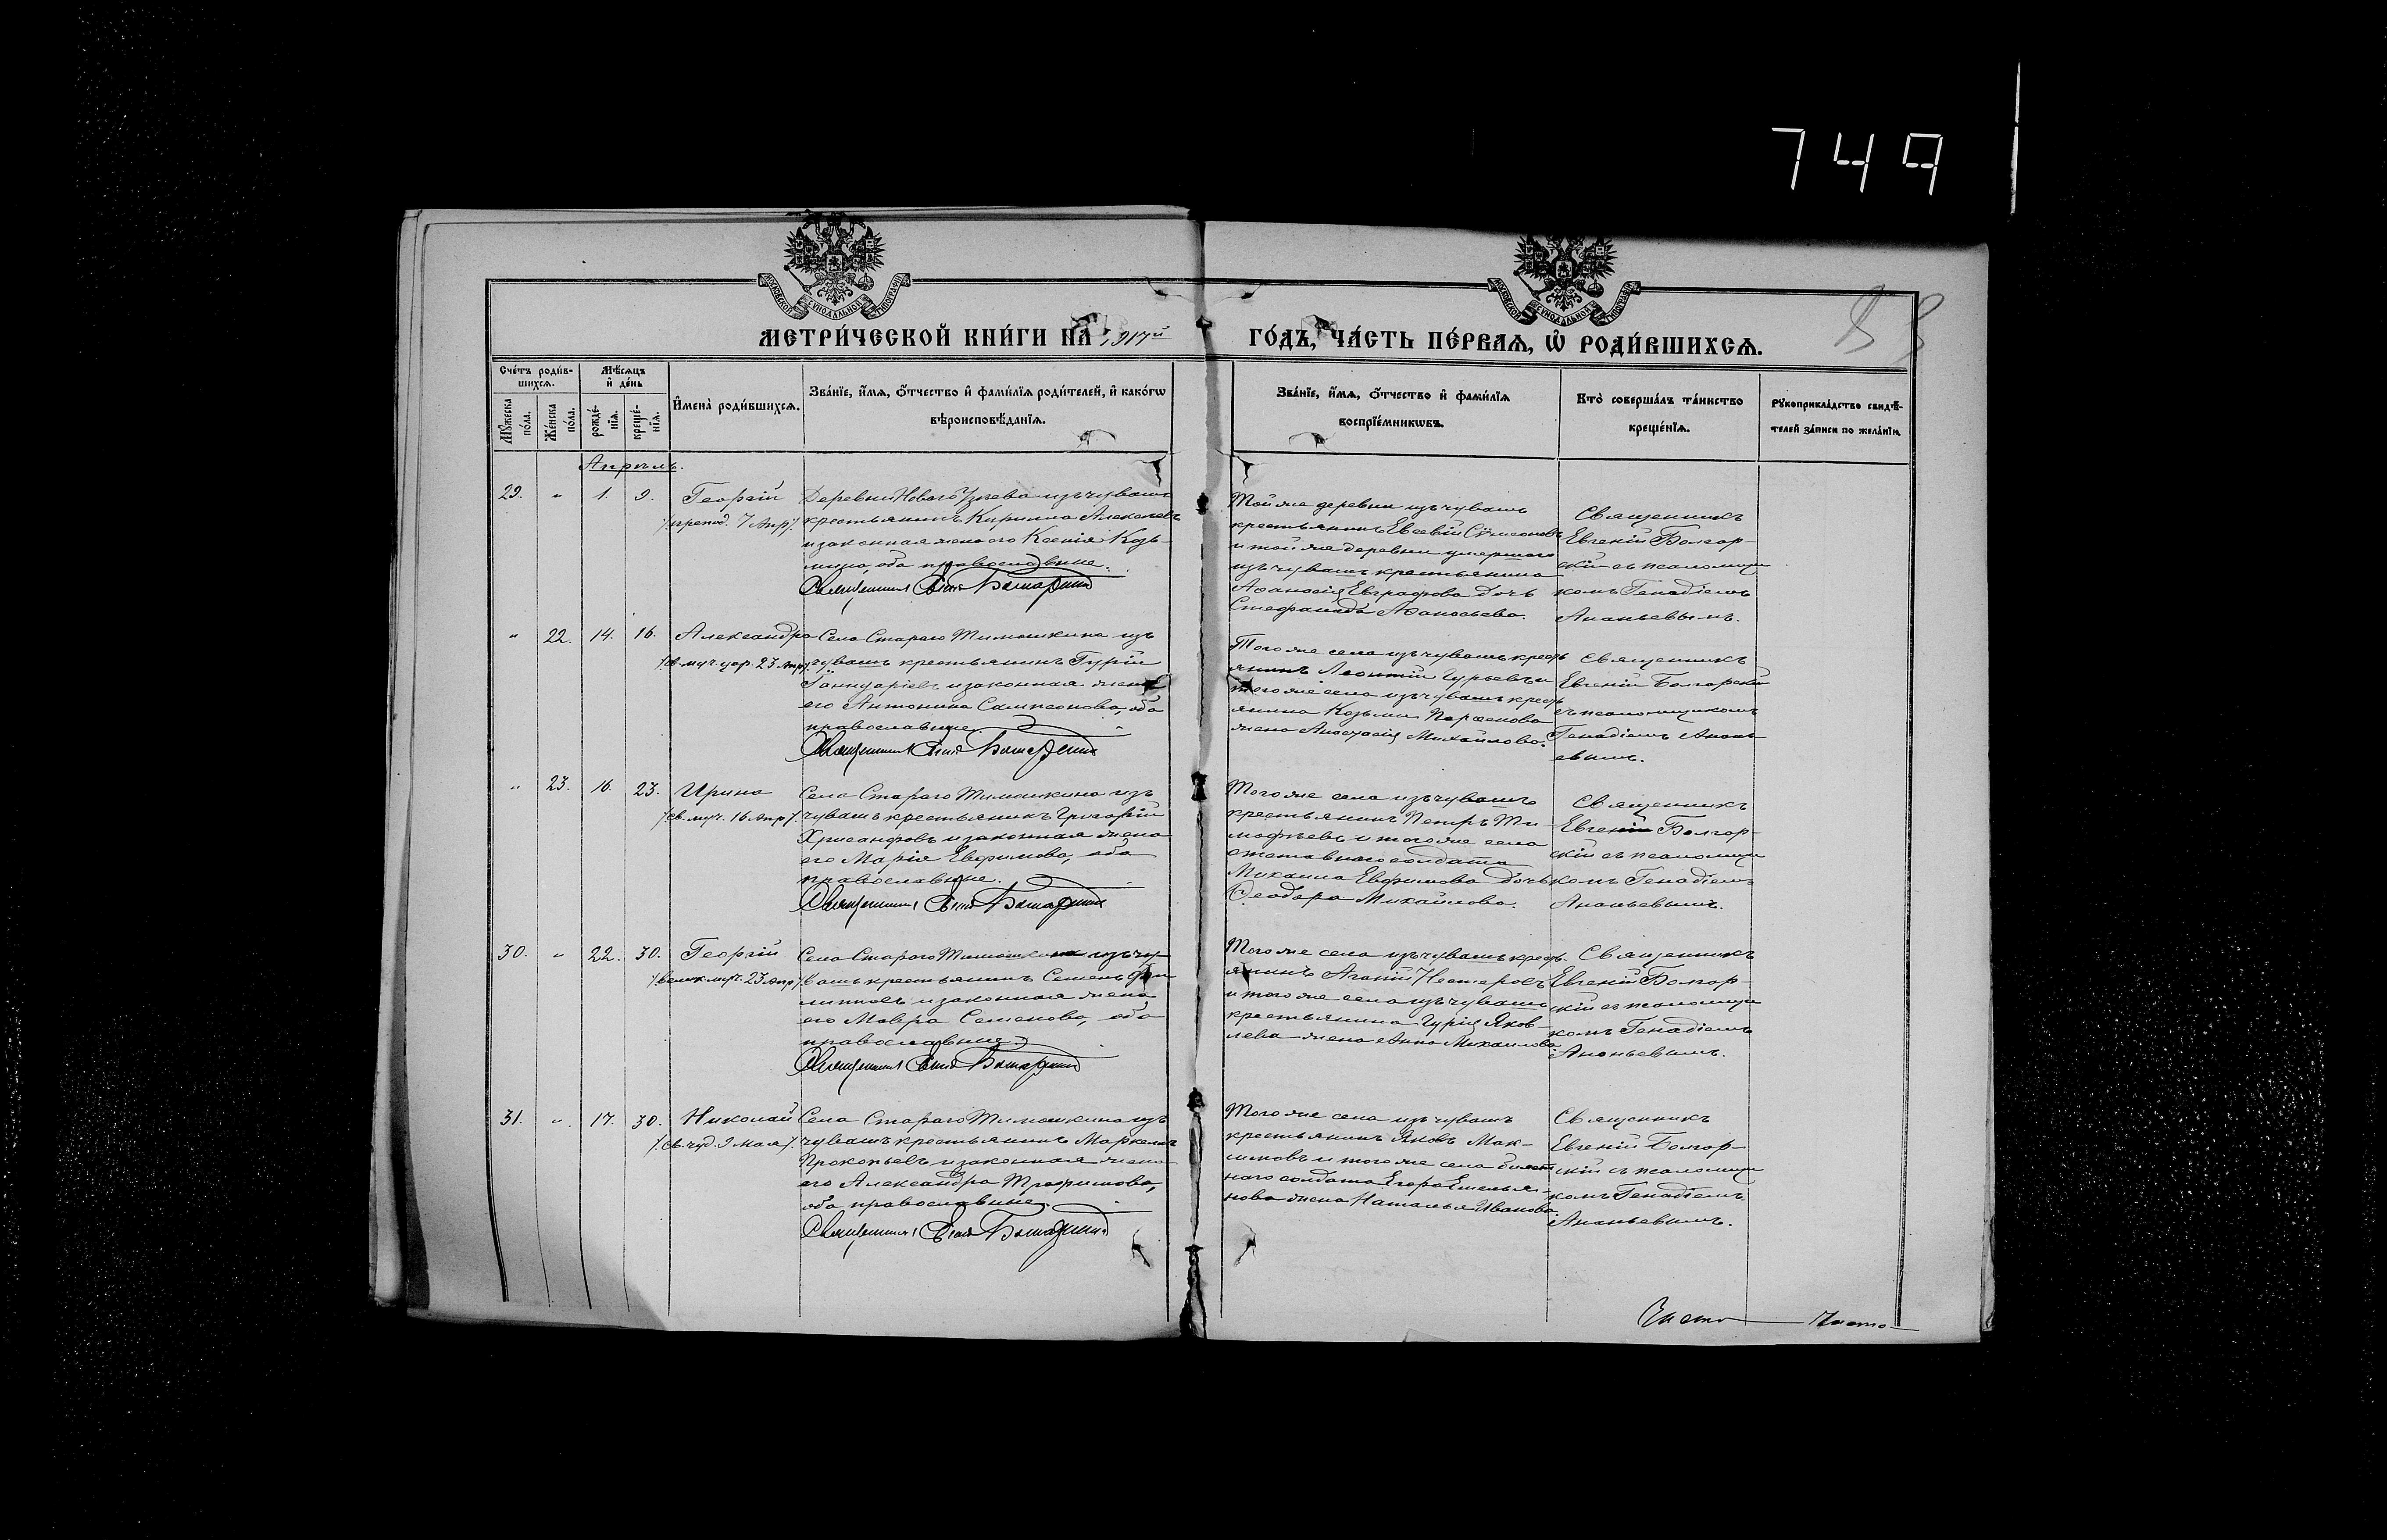 749
МОСКОВСКОЙ СѴНОДАЛЬНОЙ ТИПОГРАФІИ
МОСКОВСКОЙ СѴНОДАЛЬНОЙ ТИПОГРАФІИ
МЕТРИ́ЧЕСКОЙ КНИ́ГИ НА 1917й ГО́ДЪ, ЧА́СТЬ ПЕ́РВАѦ, Ѡ РОДИ́ВШИХСѦ.
Сче́тъ роди́в-
шихсѧ.
Мѣ́сѧцъ
и де́нь
Мꙋ́жеска
по́ла.
Же́нска
по́ла.
рожде́-
нїѧ.
креще́-
нїѧ.
Имена̀ роди́вшихсѧ.
Зва́нїе, и́мѧ, ѻ́тчество и фами́лїѧ роди́телей, и како́гѡ
вѣроисповѣ́данїѧ.
Зва́нїе, и́мѧ, ѻ́тчество и фами́лїѧ
воспрїе́мникѡвъ.
Кто̀ соверша́лъ та́инство
креще́нїѧ.
Рꙋкоприкла́дство свидѣ́-
телей за́писи по жела́нїю.
Апрѣль.
29. " 1. 9. Георгій
/препод. 7 Апр/.
Деревни Новаго Узеева изъ чувашъ
крестьянинъ Кириллъ Алексѣевъ
и законная жена его Ксенія Козь-
мина, оба православные.
Священникъ
Той же деревни изъ чувашъ
крестьянинъ Евсевій Сѵмеоновъ
и той же деревни умершаго
изъ чувашъ крестьянина
Аѳанасія Евграфова дочь
Стефанида Аѳанасьева.
Священникъ
Евгеній Болгар-
скій съ псаломщи
комъ Генадіемъ
Ананьевымъ.
" 22. 14. 16. Александра
/св. муч. цар. 23 Апр/.
Села Стараго Тимошкина изъ
чувашъ крестьянинъ Гурій
Іаннуаріевъ и законная жена
его Антонина Сампсонова, оба
православные.
Священникъ
Того же села изъ чувашъ кресть
янинъ Леонтій Гурьевъ и
того же села изъ чувашъ кресть
янина Козьмы Парѳенова
жена Анастасія Михайлова.
Священникъ
Евгеній Болгарскій
съ псаломщикомъ
Генадіемъ Анань
евымъ.
" 23. 16. 23. Ирина
/св. муч. 16 Апр/.
Села Стараго Тимошкина изъ
чувашъ крестьянинъ Григорій
Хрисанфовъ и законная жена
его Марія Евфимова, оба
православные.
Священникъ
Того же села изъ чувашъ
крестьянинъ Петръ Ти-
моѳѣевъ и того же села
отставного солдата
Михаила Евфимова дочь
Ѳеодора Михайлова.
Священникъ
Евгеній Болгар-
скій съ псаломщи
комъ Генадіемъ
Ананьевымъ.
30. " 22. 30. Георгій
/велик. муч. 23 Апр/.
Села Стараго Тимошкина изъ чу-
вашъ крестьянинъ Семенъ Фи
липповъ и законная жена
его Мавра Семенова, оба
православные.
Священникъ
Того же села изъ чувашъ кресть
янинъ Агапій Нестеровъ
и того же села изъ чувашъ
крестьянина Гурія Яков-
лева жена Анна Михайлова.
Священникъ
Евгеній Болгар-
скій съ псаломщи
комъ Генадіемъ
Ананьевымъ.
31. " 17. 30. Николай
/св. чуд. 9 мая/.
Села Стараго Тимошкина изъ
чувашъ крестьянинъ Маркелъ
Прокопьевъ и законная жена
его Александра Трофимова,
оба православные.
Священникъ
Того же села изъ чувашъ
крестьянинъ Яковъ Мак-
симовъ и того же села
наго солдата Егора Емелья-
нова жена Наталья Иванова.
Священникъ
Евгеній Болгар-
скій съ псаломщи
комъ Генадіемъ
Ананьевымъ.